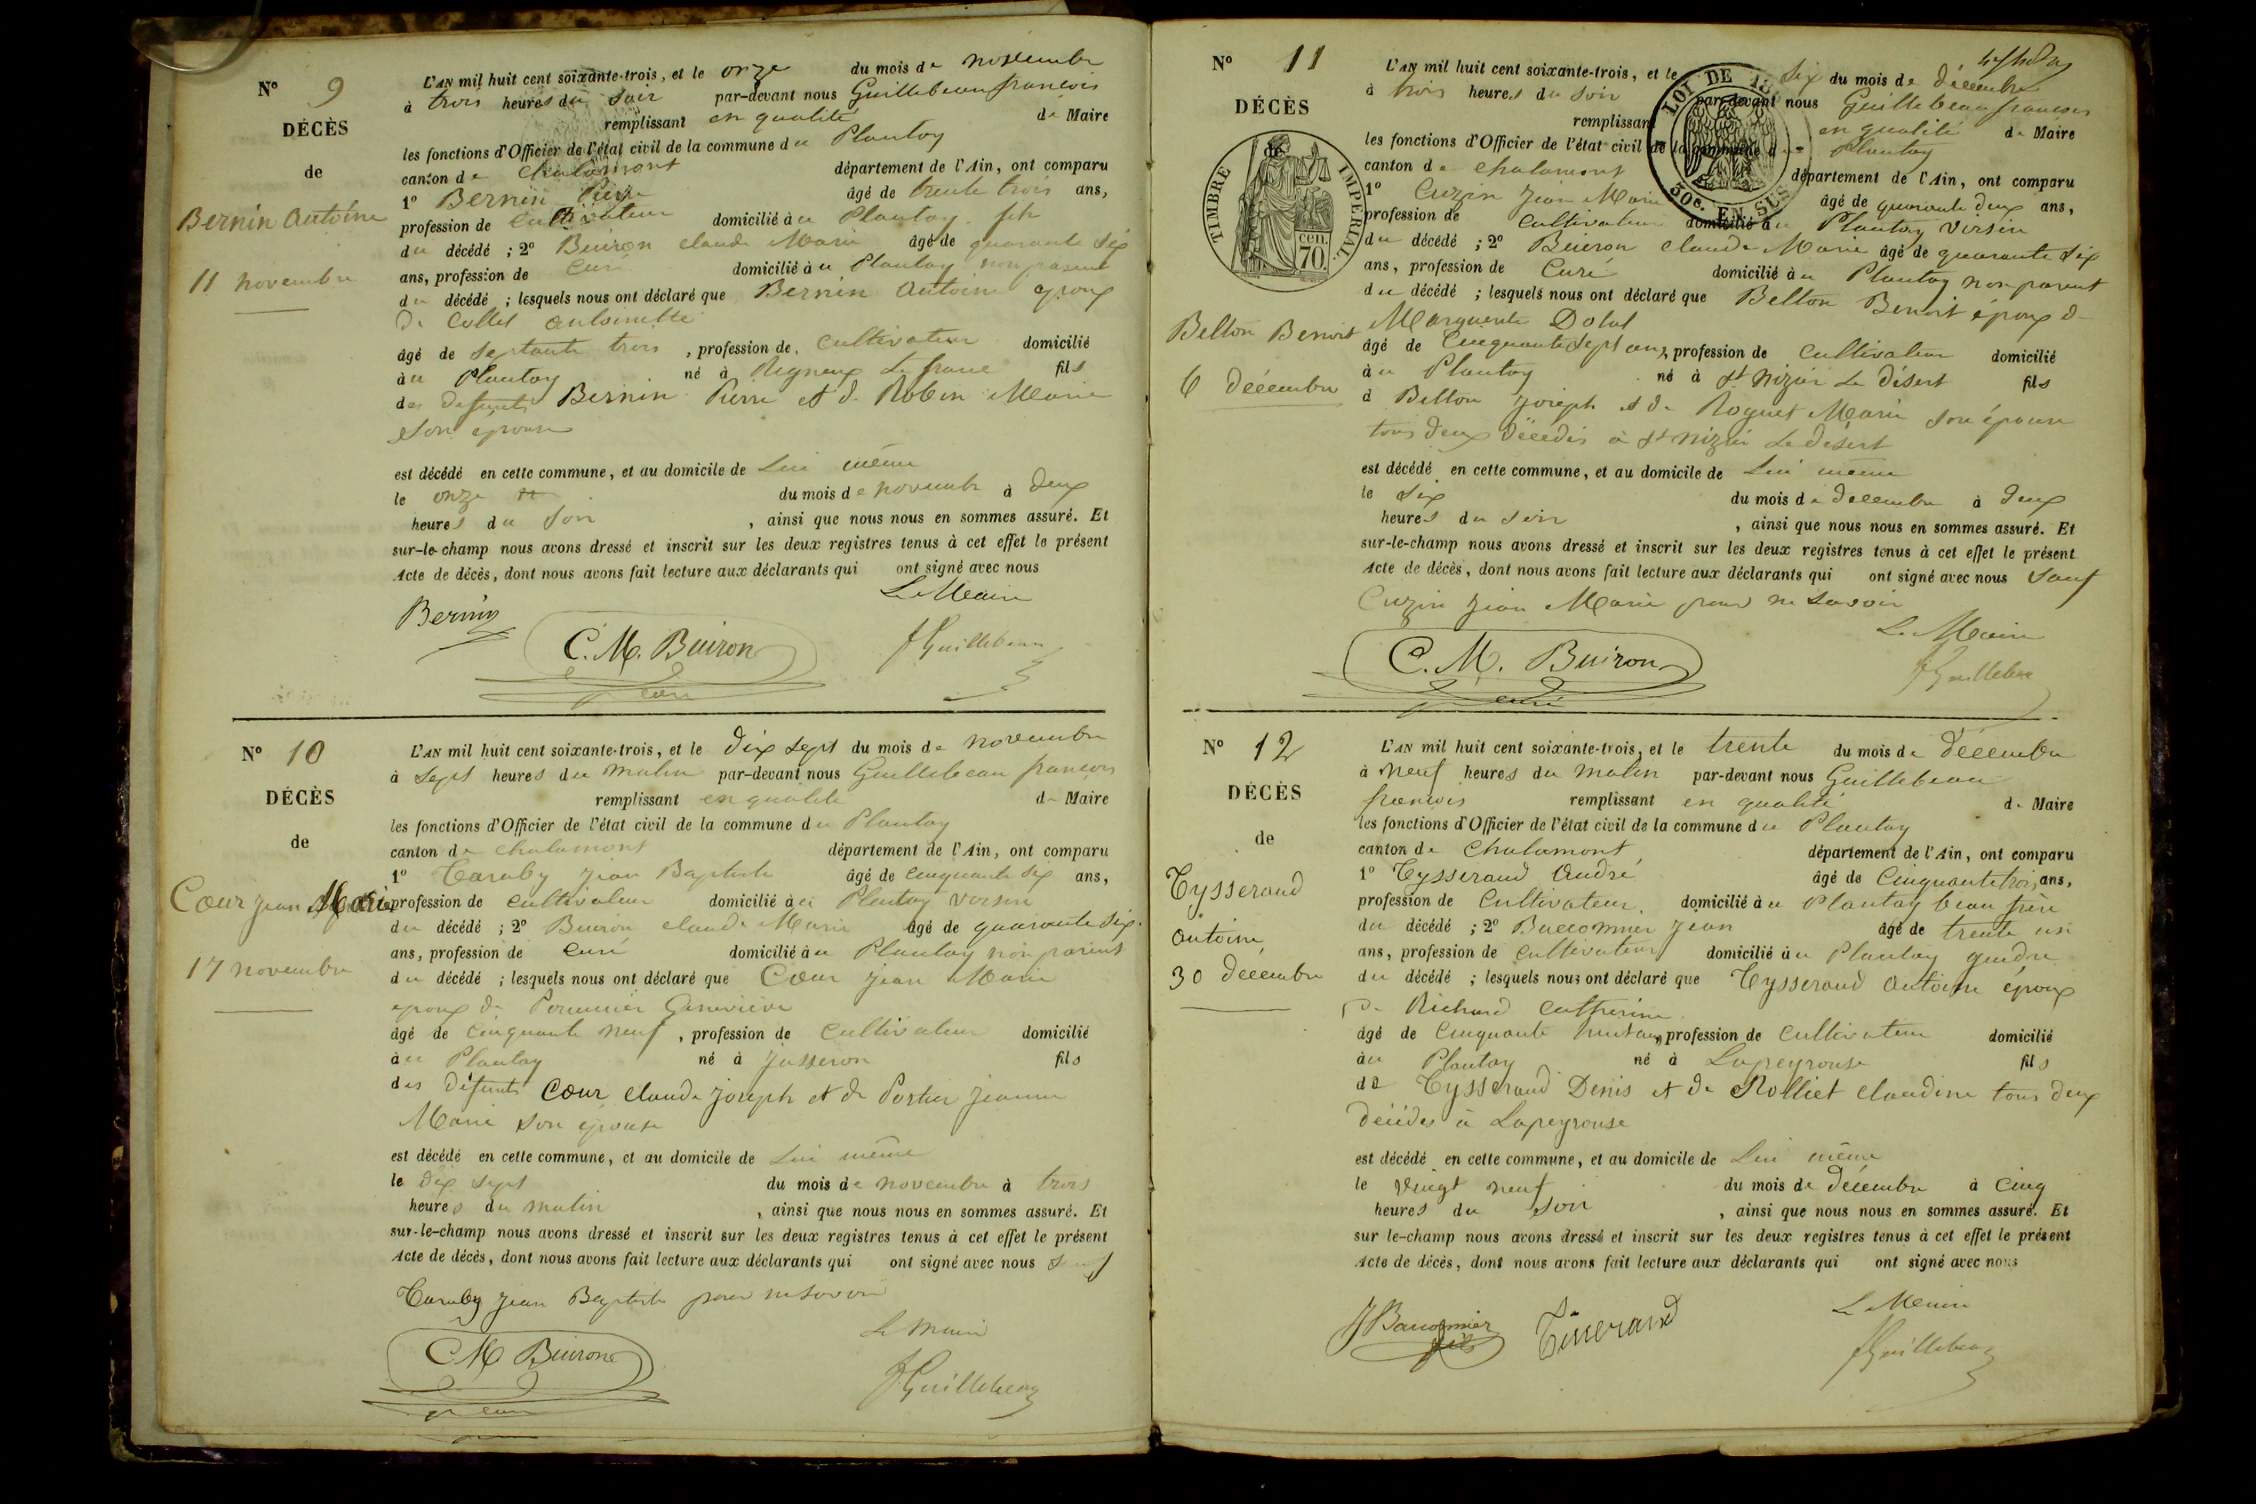 N° 9
DÉCÈS
de
Bernin Antoine
11 novembre
L'AN mil huit cent soixante-trois, et le onze du mois de novembre
à trois heures du soir par-devant nous Guillebeau francois
remplissant en qualité de Maire
les fonctions d'Officier de l'état civil de la commune du Plantay
canton de Chalamont département de l'Ain, ont comparu
1° Bernin Pierre âgé de trente trois ans,
profession de Cultivateur domicilié à u Plantay fils
du décédé ; 2° Buiron claude Marie âgé de quarante six
ans, profession de Curé domicilié à u Plantay non parent
du décédé ; lesquels nous ont déclaré que Bernin Antoine epoux
De Collet antoinette
âgé de septante trois , profession de Cultivateur domicilié
à u Plantay né à Rigneux Le franc fils
des defunts Bernin Pierre et de Robin Marie
son épouse
est décédé en cette commune, et au domicile de Lui même
le onze du mois de novembre à deux
heures du soir , ainsi que nous nous en sommes assuré. Et
sur-le-champ nous avons dressé et inscrit sur les deux registres tenus à cet effet le présent
Acte de décès, dont nous avons fait lecture aux déclarants qui ont signé avec nous
Le Maire
Bernin C. M. Buiron f Guillebeau
curé
N° 10
DÉCÈS
de
Cœur jean Marie
17 novembre
L'AN mil huit cent soixante-trois, et le dix sept du mois de novembre
à sept heures du matin par-devant nous Guillebeau francois
remplissant en qualité de Maire
les fonctions d'Officier de l'état civil de la commune du Plantay
canton de chalamont département de l'Ain, ont comparu
1° Caraby jean Baptiste âgé de cinquante six ans,
profession de cultivateur domicilié à u Plantay voisin
du décédé ; 2° Buiron claude Marie âgé de quarante six
ans, profession de curé domicilié à u Plantay non parent
du décédé ; lesquels nous ont déclaré que Cœur jean Marie
epoux de Geneviève
âgé de cinquante neuf , profession de cultivateur domicilié
à u Plantay né à jasseron fils
des défunts Cœur claude joseph et de Portier jeanne
Marie son épouse
est décédé en cette commune, et au domicile de Lui même
le dix sept du mois de novembre à trois
heures du matin , ainsi que nous nous en sommes assuré. Et
sur-le-champ nous avons dressé et inscrit sur les deux registres tenus à cet effet le présent
Acte de décès, dont nous avons fait lecture aux déclarants qui ont signé avec nous sauf
Caraby jean Baptiste pour ne savoir
Le Maire
C M Buiron f Guillebeau
curé
N° 11
DÉCÈS
de
TIMBRE IMPERIAL
cen. 70.
LOI DE
30c. EN SUS
Belton Benoit
6 décembre
L'AN mil huit cent soixante-trois, et le six du mois de décembre
à trois heures du soir par-devant nous Guillebeau francois
remplissant en qualité de Maire
les fonctions d'Officier de l'état civil de la commune du Plantay
canton de chalamont département de l'Ain, ont comparu
1° Cuzin jean Marie âgé de quarante deux ans,
profession de cultivateur domicilié à u Plantay voisin
du décédé ; 2° Buiron claude Marie âgé de quarante six
ans, profession de Curé domicilié à u Plantay non parent
du décédé ; lesquels nous ont déclaré que Belton Benoit époux d
Marguerite
âgé de cinquante sept ans, profession de cultivateur domicilié
à u Plantay né à st Nizier Le désert fils
d Belton joseph et de Roguet Marie son épouse
tous deux décédés à st Nizier Le désert
est décédé en cette commune, et au domicile de Lui même
le six du mois de decembre à deux
heures du soir , ainsi que nous nous en sommes assuré. Et
sur-le-champ nous avons dressé et inscrit sur les deux registres tenus à cet effet le présent
Acte de décès, dont nous avons fait lecture aux déclarants qui ont signé avec nous sauf
Cuzin jean Marie pour ne savoir
Le Maire
C. M. Buiron f Guillebeau
curé
N° 12
DÉCÈS
de
Tysserand
antoine
30 decembre
L'AN mil huit cent soixante-trois, et le trente du mois de décembre
à neuf heures du matin par-devant nous Guillebeau
francois remplissant en qualité de Maire
les fonctions d'Officier de l'état civil de la commune du Plantay
canton de Chalamont département de l'Ain, ont comparu
1° Tysserand André âgé de cinquante trois ans,
profession de Cultivateur domicilié à u Plantay beau frère
du décédé ; 2° Baccomnier jean âgé de trente un
ans, profession de cultivateur domicilié à u Plantay gendre
du décédé ; lesquels nous ont déclaré que Tysserand antoine époux
De Richard Catherine
âgé de cinquante huit ans, profession de cultivateur domicilié
à u Plantay né à Lapeyrouse fils
de Tysserand Denis et de Rolliet claudine tous deux
décédés à Lapeyrouse
est décédé en cette commune, et au domicile de Lui même
le vingt neuf du mois de décembre à cinq
heures du soir , ainsi que nous nous en sommes assuré. Et
sur le-champ nous avons dressé et inscrit sur les deux registres tenus à cet effet le présent
Acte de décès, dont nous avons fait lecture aux déclarants qui ont signé avec nous
Le Maire
J Baccomnier Tisserand f Guillebeau